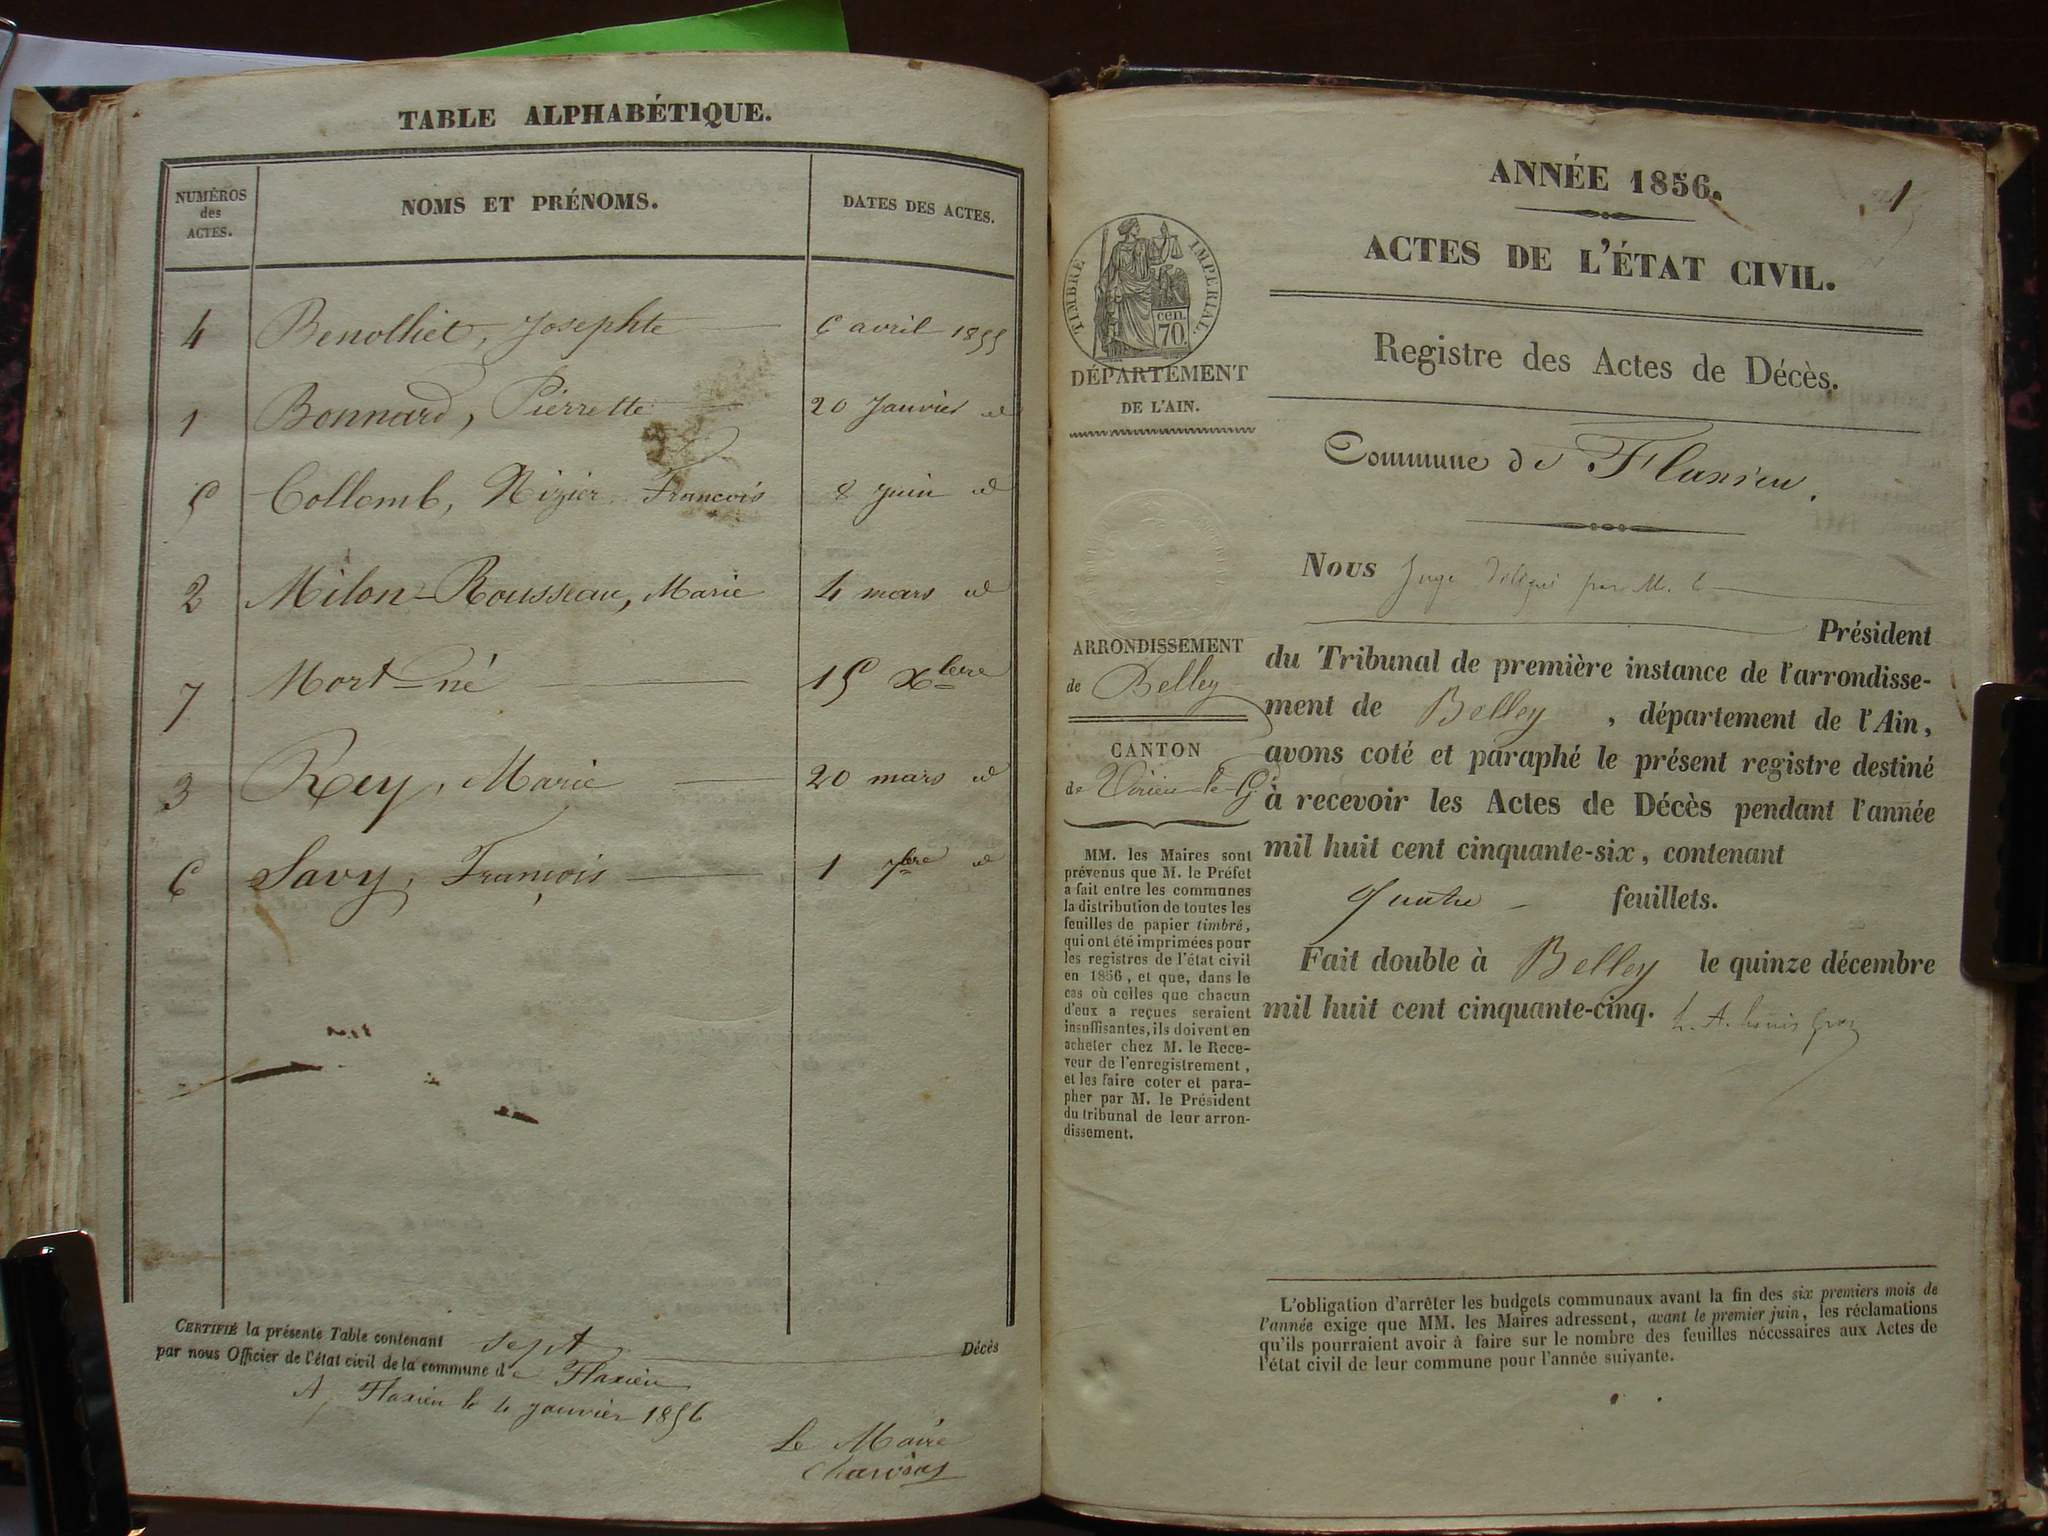 TABLE ALPHABÉTIQUE.
NUMÉROS
des
ACTES.
NOMS ET PRÉNOMS.
DATES DES ACTES.
4 Benolliet, Josephte 6 avril 1855
1 Bonnard, Pierrette 20 Janvier id
5 Collomb, Nizier François 8 Juin id
2 Milon-Rousseau, Marie 4 mars id
7 Mort-né 15 Xbre
3 Rey, Marie 20 mars id
6 Savy, François 1 7bre id
CERTIFIÉ la présente Table contenant sept Décès
par nous Officier de l'état civil de la commune de Flaxieu
A Flaxieu le 4 Janvier 1856
Le Maire
1
ANNÉE 1856.
ACTES DE L'ÉTAT CIVIL.
TIMBRE IMPÉRIAL.
cen.
70.
DÉPARTEMENT
DE L'AIN.
Registre des Actes de Décès.
Commune de Flaxieu.
Nous Juge délégué par M. le
Président
du Tribunal de première instance de l'arrondisse-
ment de Belley, département de l'Ain,
avons coté et paraphé le présent registre destiné
à recevoir les Actes de Décès pendant l'année
mil huit cent cinquante-six, contenant
quatre feuillets.
Fait double à Belley le quinze décembre
mil huit cent cinquante-cinq.
ARRONDISSEMENT
de Belley
CANTON
de Virieu-le-Gd
MM. les Maires sont
prévenus que M. le Préfet
a fait entre les communes
la distribution de toutes les
feuilles de papier timbré,
qui ont été imprimées pour
les registres de l'état civil
en 1856, et que, dans le
cas où celles que chacun
d'eux a reçues seraient
insuffisantes, ils doivent en
acheter chez M. le Rece-
veur de l'enregistrement,
et les faire coter et para-
pher par M. le Président
du tribunal de leur arron-
dissement.
L'obligation d'arrêter les budgets communaux avant la fin des six premiers mois de
l'année exige que MM. les Maires adressent, avant le premier juin, les réclamations
qu'ils pourraient avoir à faire sur le nombre des feuilles nécessaires aux Actes de
l'état civil de leur commune pour l'année suivante.